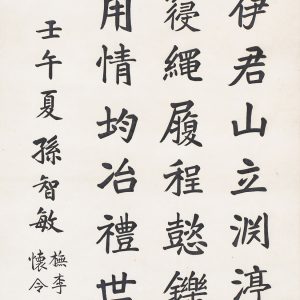 伊君山立渊渟
繩履程懿鑠
用情均冶禮世
壬午夏孫智敏
李令
懷